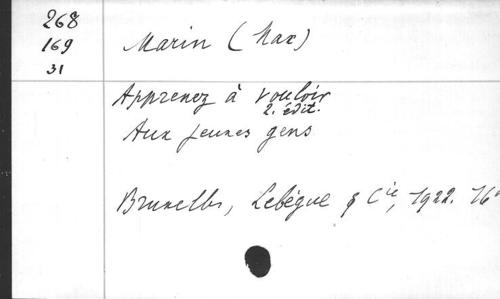 268
169
31
Marin (Max)
Apprenez à vouloir
2. édit.
Aux jeunes gens
Bruxelles, Lebègue & Cie, 1922. 16°